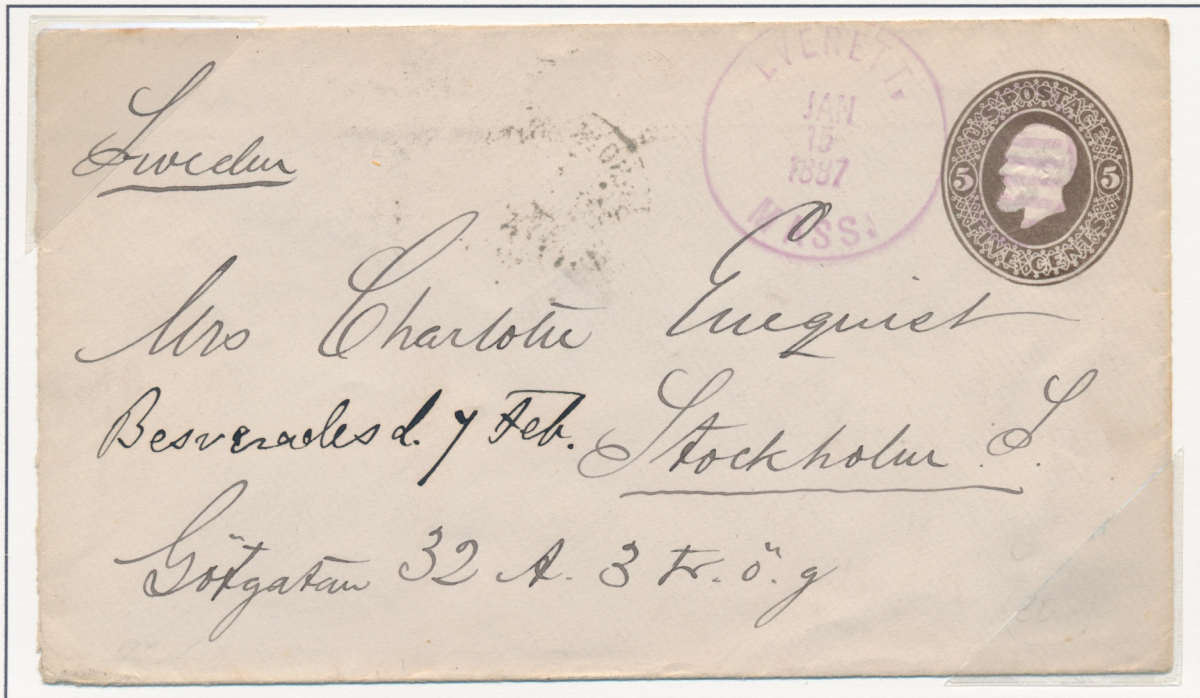 EVERETT.
JAN
15
1887
MISS.
U.S. POSTAGE
5 5
FIVE CENTS
Sweden
Mrs Charlotte
Besvarades d. 7 Feb.
Stockholm. S.
Götgatan 32 A. 3 tr. ö. g